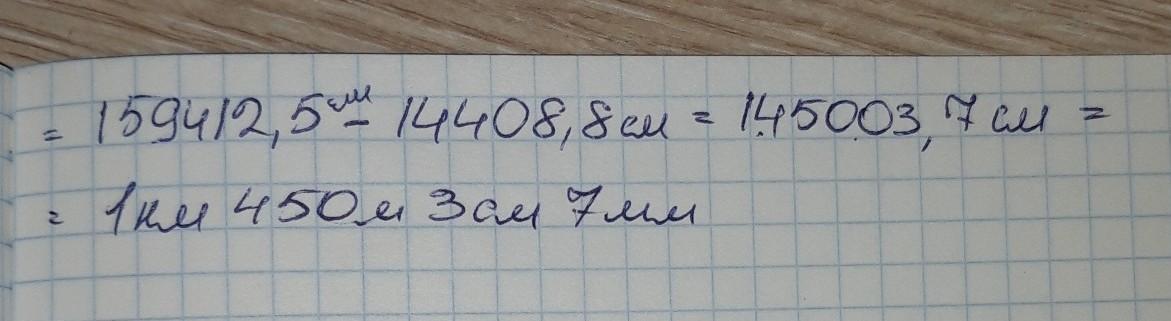 = 159412,5см - 14408,8см = 145003,7см =
= 1км 450м 3см 7мм